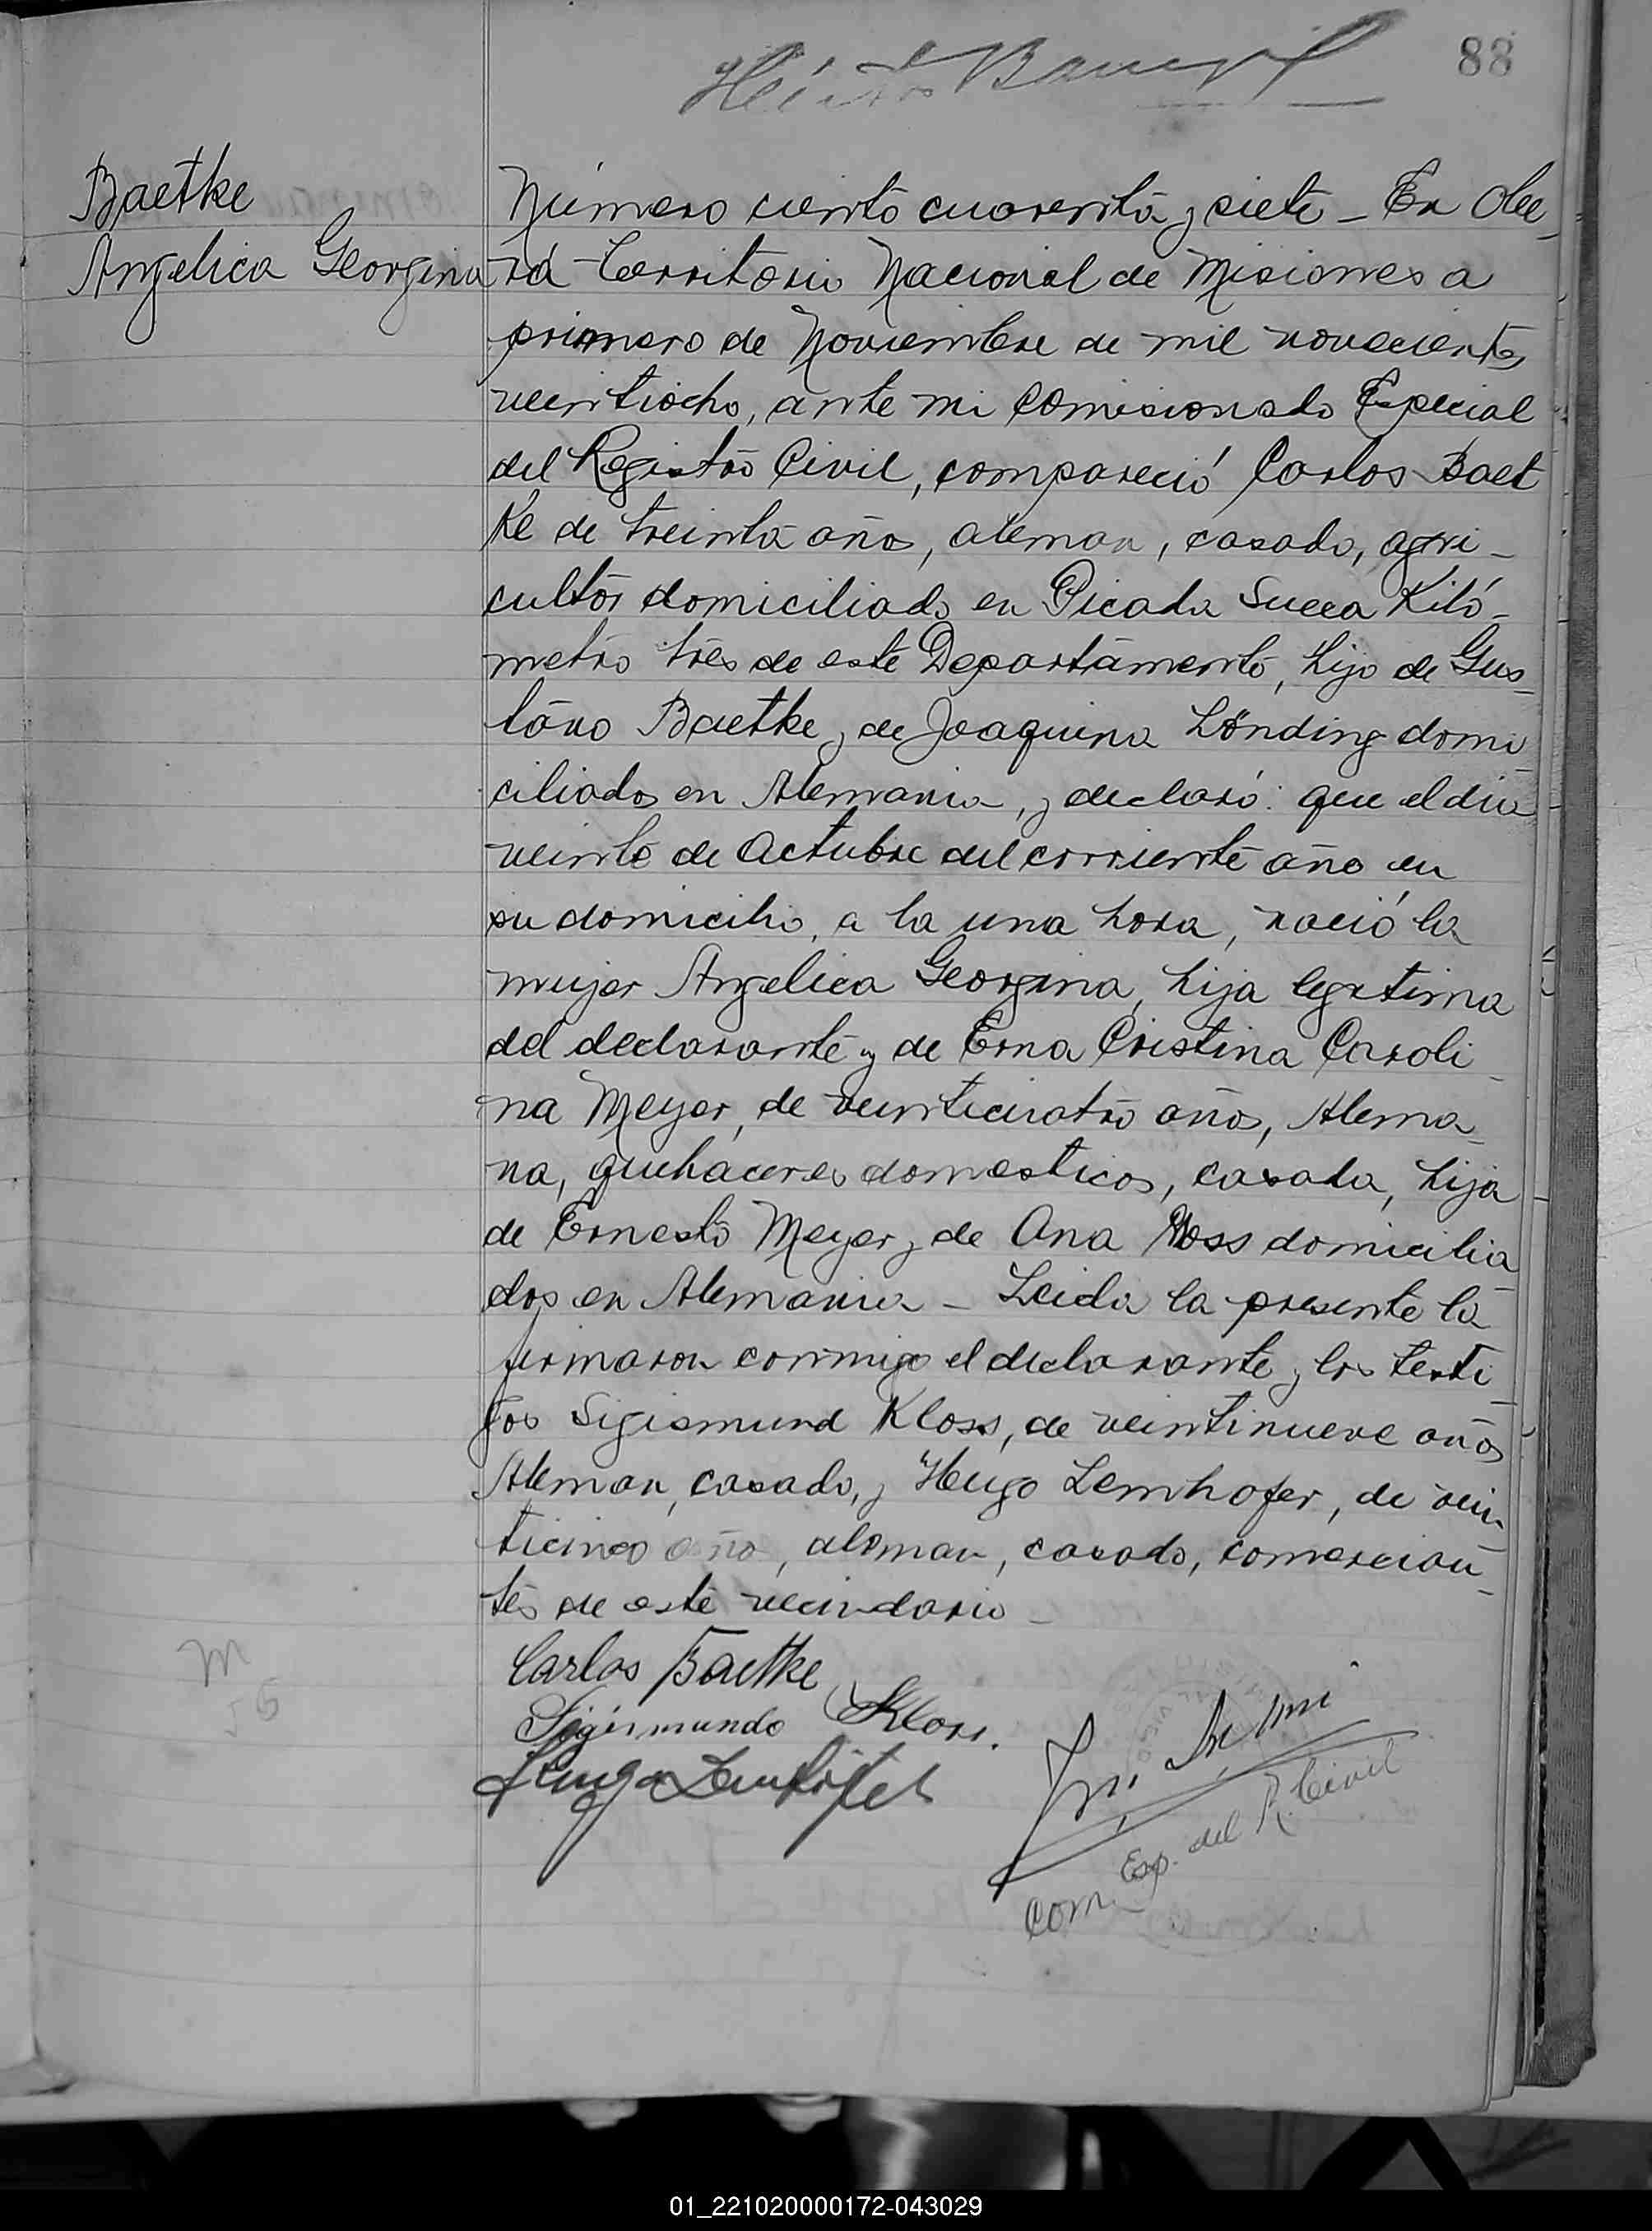 88
Baetke
Angelica Georgina
Número ciento cuarenta y siete - En Obe-
rá - Territorio Nacional de Misiones a
primero de Noviembre de mil novecientos
veintiocho, ante mi Comisionado Especial
del Registro Civil, compareció Carlos Baet
ke de treinta años, aleman, casado, agri-
cultor domiciliado en Picada Sueca Kiló-
metro tres de este Departamento, hijo de Gus-
tavo Baetke y de Joaquina Lönding domi-
ciliados en Alemania, y declaró: que el dia
veinte de Octubre del corriente año en
su domicilio, a la una hora, nació la
mujer Angelica Georgina, hija legitima
del declarante y de Erna Cristina Caroli-
na Meyer, de veinticuatro años, Alema-
na, quehaceres domesticos, casada, hija
de Ernesto Meyer y de Ana domicilia-
dos en Alemania - Leida la presente la
firmaron conmigo el declarante y los testi-
gos Sigismund Kloss, de veintinueve años
Aleman, casado, y Hugo Lemhofer, de vein-
ticinco año, aleman, casado, comercian-
tes de este vecindario -
Carlos Baetke
Sigismundo Kloss.
Hugo Lemhöfer
Com. Esp. del R. Civil
M
56
01_221020000172-043029